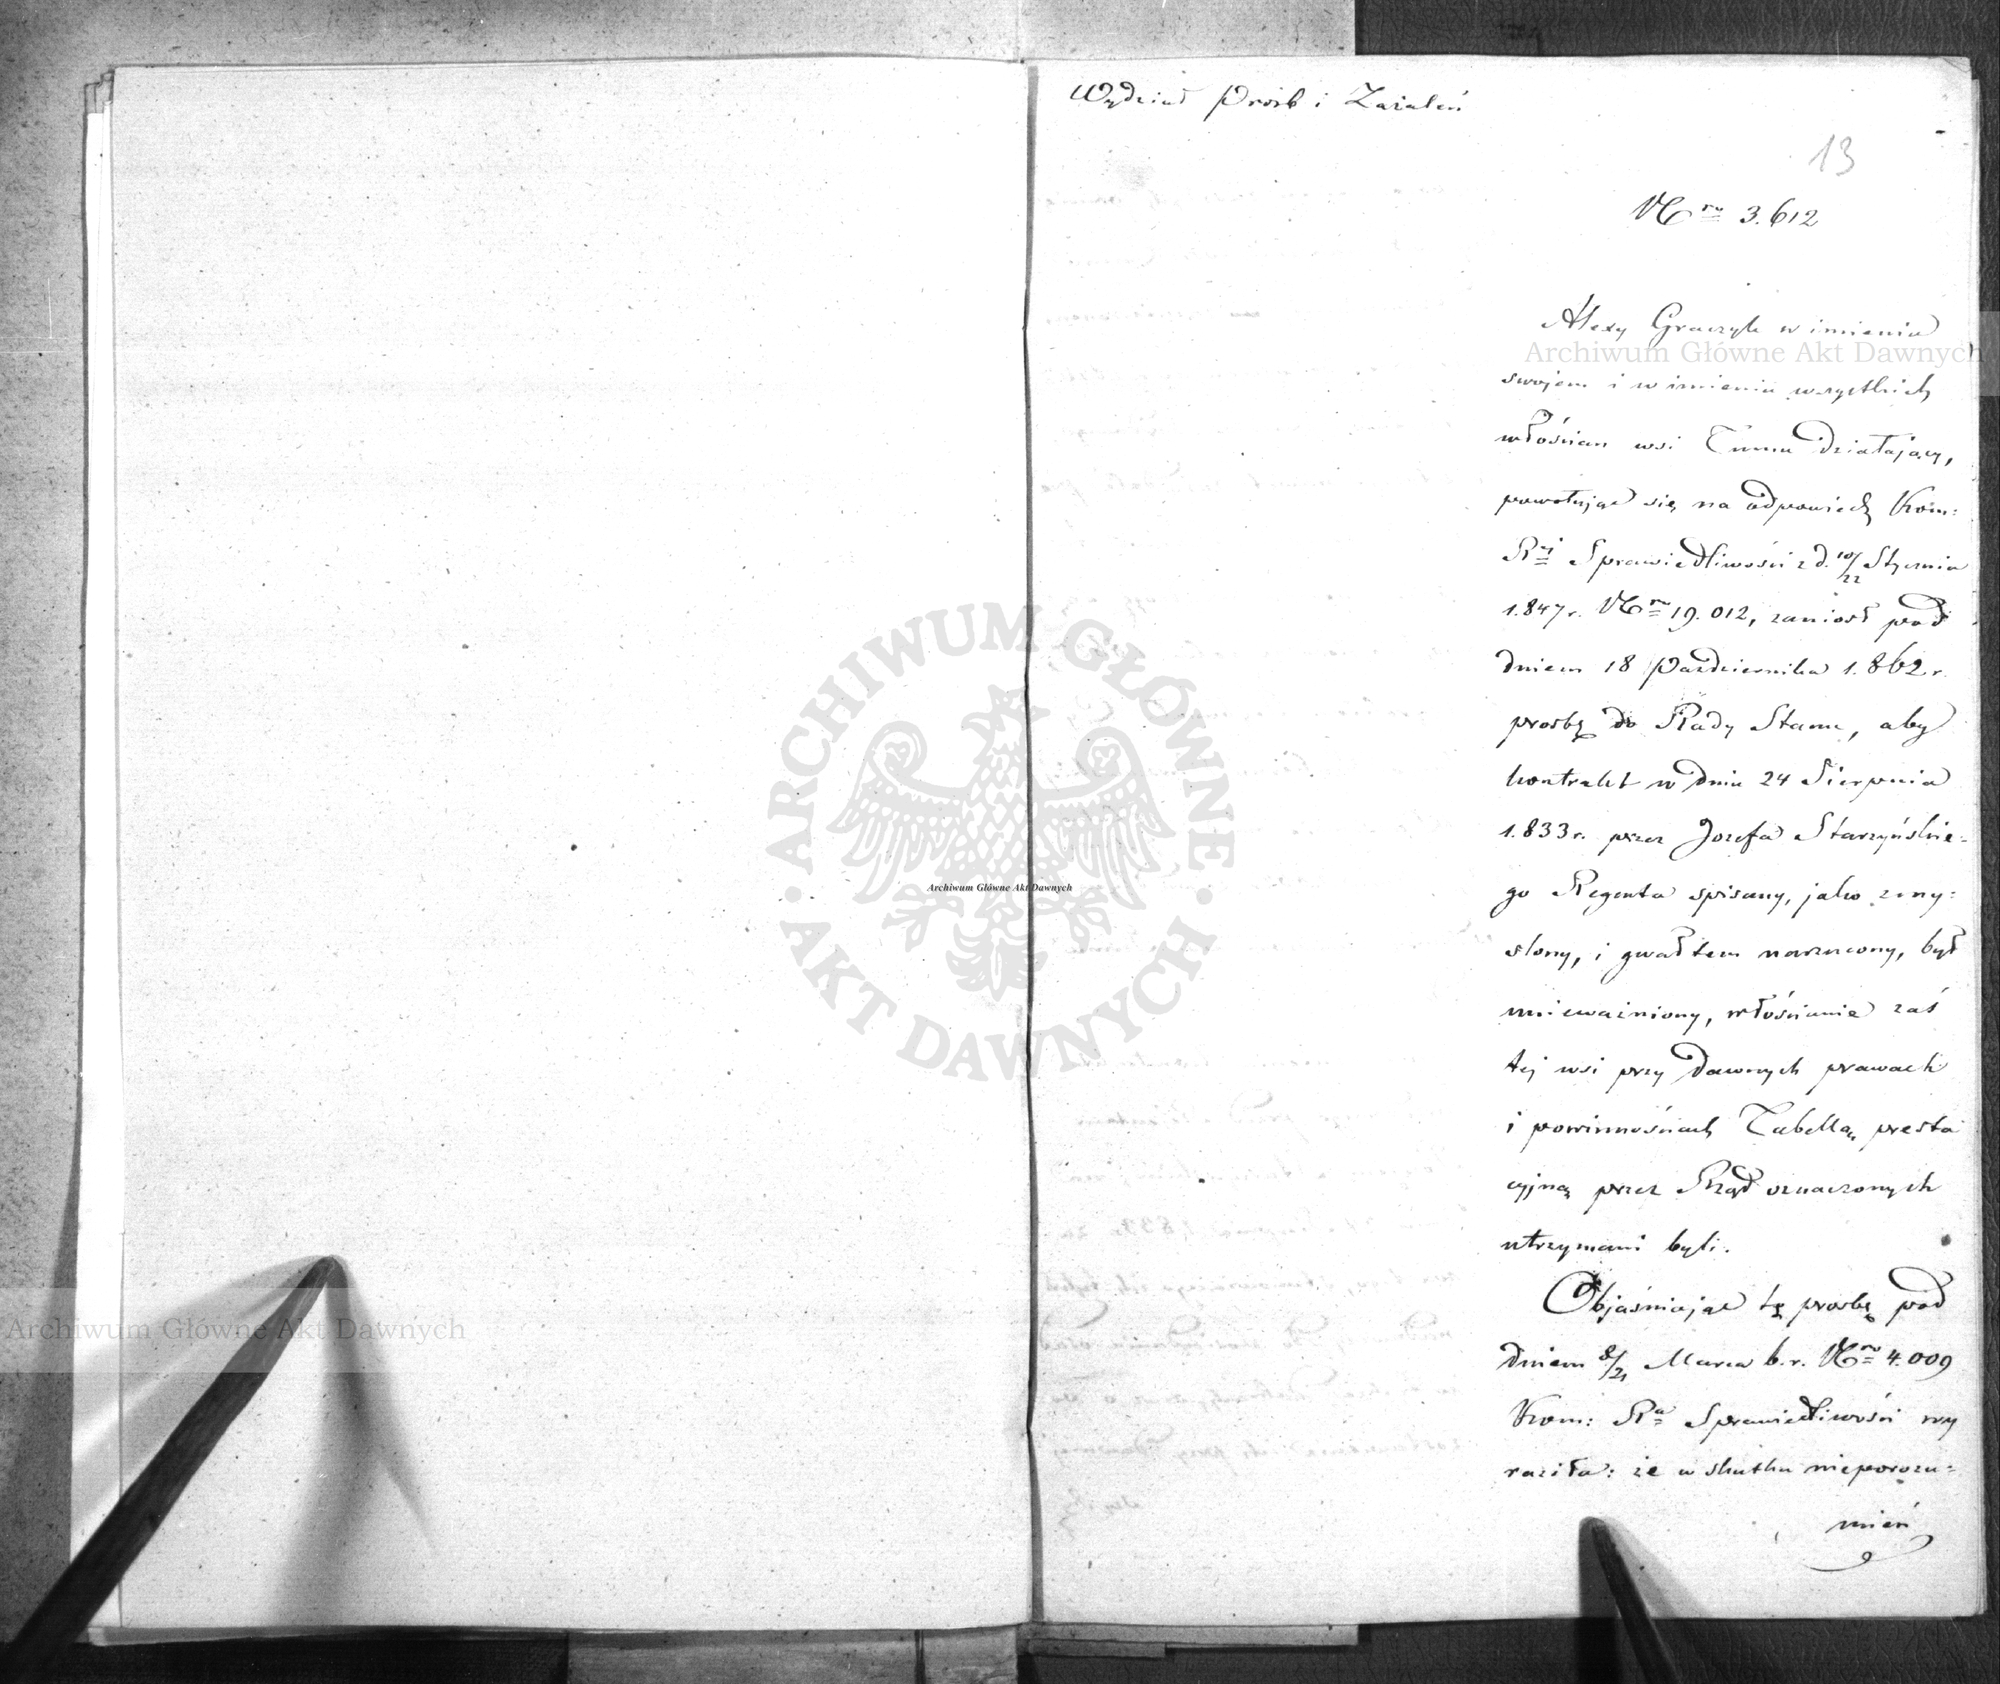 Wydział Prośb i Zażaleń
13
Nrw 3.612
Alexy Graczyk w imieniu
swojem i w imieniu wszystkich
włościan wsi Tumu działający,
powołując się na odpowiedź Kom:
Rej Sprawiedliwości z d. 10/22 Stycznia
1.847 r. Nrw 19.012, zaniosł pod
dniem 18 Października 1.862 r.
prosbę do Rady Stanu, aby
kontrakt w dniu 24 Sierpnia
1.833 r. przez Jozefa Starzyńskie-
go Regenta spisany, jako zmy:
slony, i gwałtem narzucony, był
unieważniony, włościanie zaś
tej wsi przy dawnych prawach
i powinnościach Tabellą presta
cyjną przez Rząd oznaczonych
utrzymani byli.
Objaśniając tę prosbę pod
dniem 8/21 Marca b. r. Nrw 4.009
Kom: Ra Sprawiedliwości wy
raziła: że w skutku nieporozu-
mień
Archiwum Główne Akt Dawnych
ARCHIWUM GŁÓWNE
AKT DAWNYCH
Archiwum Główne Akt Dawnych
Archiwum Główne Akt Dawnych